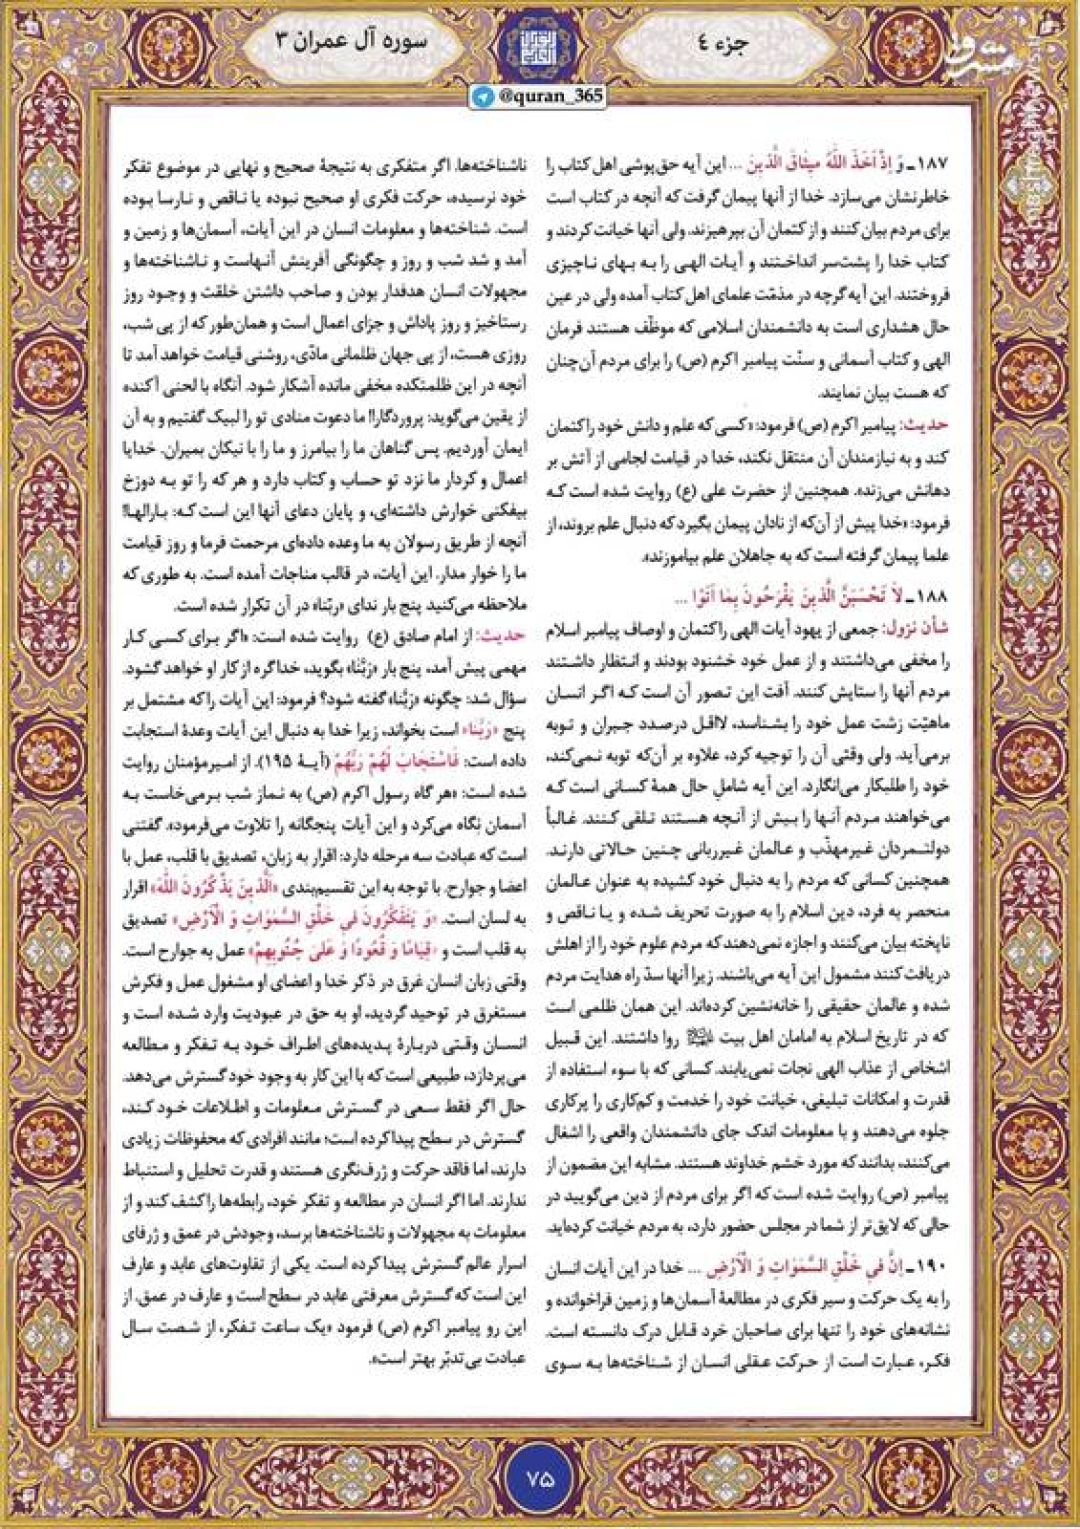 جزء ٤
سوره آل عمران ٣
مشرق
@quran_365
١٨٧ـ وَ إِذْ أَخَذَ اللَّهُ ميثاقَ الَّذينَ ... این آیه حق‌پوشی اهل کتاب را
خاطرنشان می‌سازد. خدا از آنها پیمان گرفت که آنچه در کتاب است
برای مردم بیان کنند و از کتمان آن بپرهیزند. ولی آنها خیانت کردند و
کتاب خدا را پشت‌سر انداختند و آیات الهی را به بهای ناچیزی
فروختند. این آیه گرچه در مذمّت علمای اهل کتاب آمده ولی در عین
حال هشداری است به دانشمندان اسلامی که موظّف هستند فرمان
الهی و کتاب آسمانی و سنّت پیامبر اکرم (ص) را برای مردم آن‌چنان
که هست بیان نمایند.
حدیث: پیامبر اکرم (ص) فرمود: «کسی که علم و دانش خود را کتمان
کند و به نیازمندان آن منتقل نکند، خدا در قیامت لجامی از آتش بر
دهانش می‌زند». همچنین از حضرت علی (ع) روایت شده است که
فرمود: «خدا پیش از آن‌که از نادان پیمان بگیرد که دنبال علم بروند، از
علما پیمان گرفته است که به جاهلان علم بیاموزند».
١٨٨ـ لا تَحْسَبَنَّ الَّذينَ يَفْرَحُونَ بِما أَتَوْا ...
شأن نزول: جمعی از یهود آیات الهی را کتمان و اوصاف پیامبر اسلام
را مخفی می‌داشتند و از عمل خود خشنود بودند و انتظار داشتند
مردم آنها را ستایش کنند. آفت این تصور آن است که اگر انسان
ماهیّت زشت عمل خود را بشناسد، لااقل درصدد جبران و توبه
برمی‌آید. ولی وقتی آن را توجیه کرد، علاوه بر آن‌که توبه نمی‌کند،
خود را طلبکار می‌انگارد. این آیه شامل حال همهٔ کسانی است که
می‌خواهند مردم آنها را بیش از آنچه هستند تلقی کنند. غالباً
دولتمردان غیرمهذّب و عالمان غیرربانی چنین حالاتی دارند.
همچنین کسانی که مردم را به دنبال خود کشیده به عنوان عالمان
منحصر به فرد، دین اسلام را به صورت تحریف شده و یا ناقص و
ناپخته بیان می‌کنند و اجازه نمی‌دهند که مردم علوم خود را از اهلش
دریافت کنند مشمول این آیه می‌باشند. زیرا آنها سدّ راه هدایت مردم
شده و عالمان حقیقی را خانه‌نشین کرده‌اند. این همان ظلمی است
که در تاریخ اسلام به امامان اهل بیت روا داشتند. این قبیل
اشخاص از عذاب الهی نجات نمی‌یابند. کسانی که با سوء استفاده از
قدرت و امکانات تبلیغی، خیانت خود را خدمت و کم‌کاری را پرکاری
جلوه می‌دهند و با معلومات اندک جای دانشمندان واقعی را اشغال
می‌کنند، بدانند که مورد خشم خداوند هستند. مشابه این مضمون از
پیامبر (ص) روایت شده است که اگر برای مردم از دین می‌گویید در
حالی که لایق‌تر از شما در مجلس حضور دارد، به مردم خیانت کرده‌اید.
١٩٠ـ إِنَّ في خَلْقِ السَّمٰواتِ وَ الْأَرْضِ ... خدا در این آیات انسان
را به یک حرکت و سیر فکری در مطالعهٔ آسمان‌ها و زمین فراخوانده و
نشانه‌های خود را تنها برای صاحبان خرد قابل درک دانسته است.
فکر، عبارت است از حرکت عقلی انسان از شناخته‌ها به سوی
ناشناخته‌ها. اگر متفکری به نتیجهٔ صحیح و نهایی در موضوع تفکر
خود نرسیده، حرکت فکری او صحیح نبوده یا ناقص و نارسا بوده
است. شناخته‌ها و معلومات انسان در این آیات، آسمان‌ها و زمین و
آمد و شد شب و روز و چگونگی آفرینش آنهاست و ناشناخته‌ها و
مجهولات انسان هدفدار بودن و صاحب داشتن خلقت و وجود روز
رستاخیز و روز پاداش و جزای اعمال است و همان‌طور که از پی شب،
روزی هست، از پی جهان ظلمانی مادّی، روشنی قیامت خواهد آمد تا
آنچه در این ظلمتکده مخفی مانده آشکار شود. آنگاه با لحنی آکنده
از یقین می‌گوید: پروردگارا! ما دعوت منادی تو را لبیک گفتیم و به آن
ایمان آوردیم. پس گناهان ما را بیامرز و ما را با نیکان بمیران. خدایا
اعمال و کردار ما نزد تو حساب و کتاب دارد و هر که را تو به دوزخ
بیفکنی خوارش داشته‌ای، و پایان دعای آنها این است که: بارالها!
آنچه از طریق رسولان به ما وعده داده‌ای مرحمت فرما و روز قیامت
ما را خوار مدار. این آیات، در قالب مناجات آمده است. به طوری که
ملاحظه می‌کنید پنج بار ندای «ربّنا» در آن تکرار شده است.
حدیث: از امام صادق (ع) روایت شده است: «اگر برای کسی کار
مهمی پیش آمد، پنج بار «رَبَّنا» بگوید، خدا گره از کار او خواهد گشود.
سؤال شد: چگونه «رَبَّنا» گفته شود؟ فرمود: این آیات را که مشتمل بر
پنج «رَبَّنا» است بخواند، زیرا خدا به دنبال این آیات وعدهٔ استجابت
داده است: فَاسْتَجابَ لَهُمْ رَبُّهُمْ (آیهٔ ١٩٥). از امیرمؤمنان روایت
شده است: «هر گاه رسول اکرم (ص) به نماز شب برمی‌خاست به
آسمان نگاه می‌کرد و این آیات پنجگانه را تلاوت می‌فرمود». گفتنی
است که عبادت سه مرحله دارد: اقرار به زبان، تصدیق با قلب، عمل با
اعضا و جوارح. با توجه به این تقسیم‌بندی «الَّذينَ يَذْكُرُونَ اللَّهَ» اقرار
به لسان است. «وَ يَتَفَكَّرُونَ في خَلْقِ السَّمٰواتِ وَ الْأَرْضِ» تصدیق
به قلب است و «قِيامًا وَ قُعُودًا وَ عَلىٰ جُنُوبِهِمْ» عمل به جوارح است.
وقتی زبان انسان غرق در ذکر خدا و اعضای او مشغول عمل و فکرش
مستغرق در توحید گردید، او به حق در عبودیت وارد شده است و
انسان وقتی دربارهٔ پدیده‌های اطراف خود به تفکر و مطالعه
می‌پردازد، طبیعی است که با این کار به وجود خود گسترش می‌دهد.
حال اگر فقط سعی در گسترش معلومات و اطلاعات خود کند،
گسترش در سطح پیدا کرده است؛ مانند افرادی که محفوظات زیادی
دارند، اما فاقد حرکت و ژرف‌نگری هستند و قدرت تحلیل و استنباط
ندارند. اما اگر انسان در مطالعه و تفکر خود، رابطه‌ها را کشف کند و از
معلومات به مجهولات و ناشناخته‌ها برسد، وجودش در عمق و ژرفای
اسرار عالم گسترش پیدا کرده است. یکی از تفاوت‌های عابد و عارف
این است که گسترش معرفتی عابد در سطح است و عارف در عمق. از
این رو پیامبر اکرم (ص) فرمود «یک ساعت تفکر، از شصت سال
عبادت بی‌تدبّر بهتر است».
٧٥